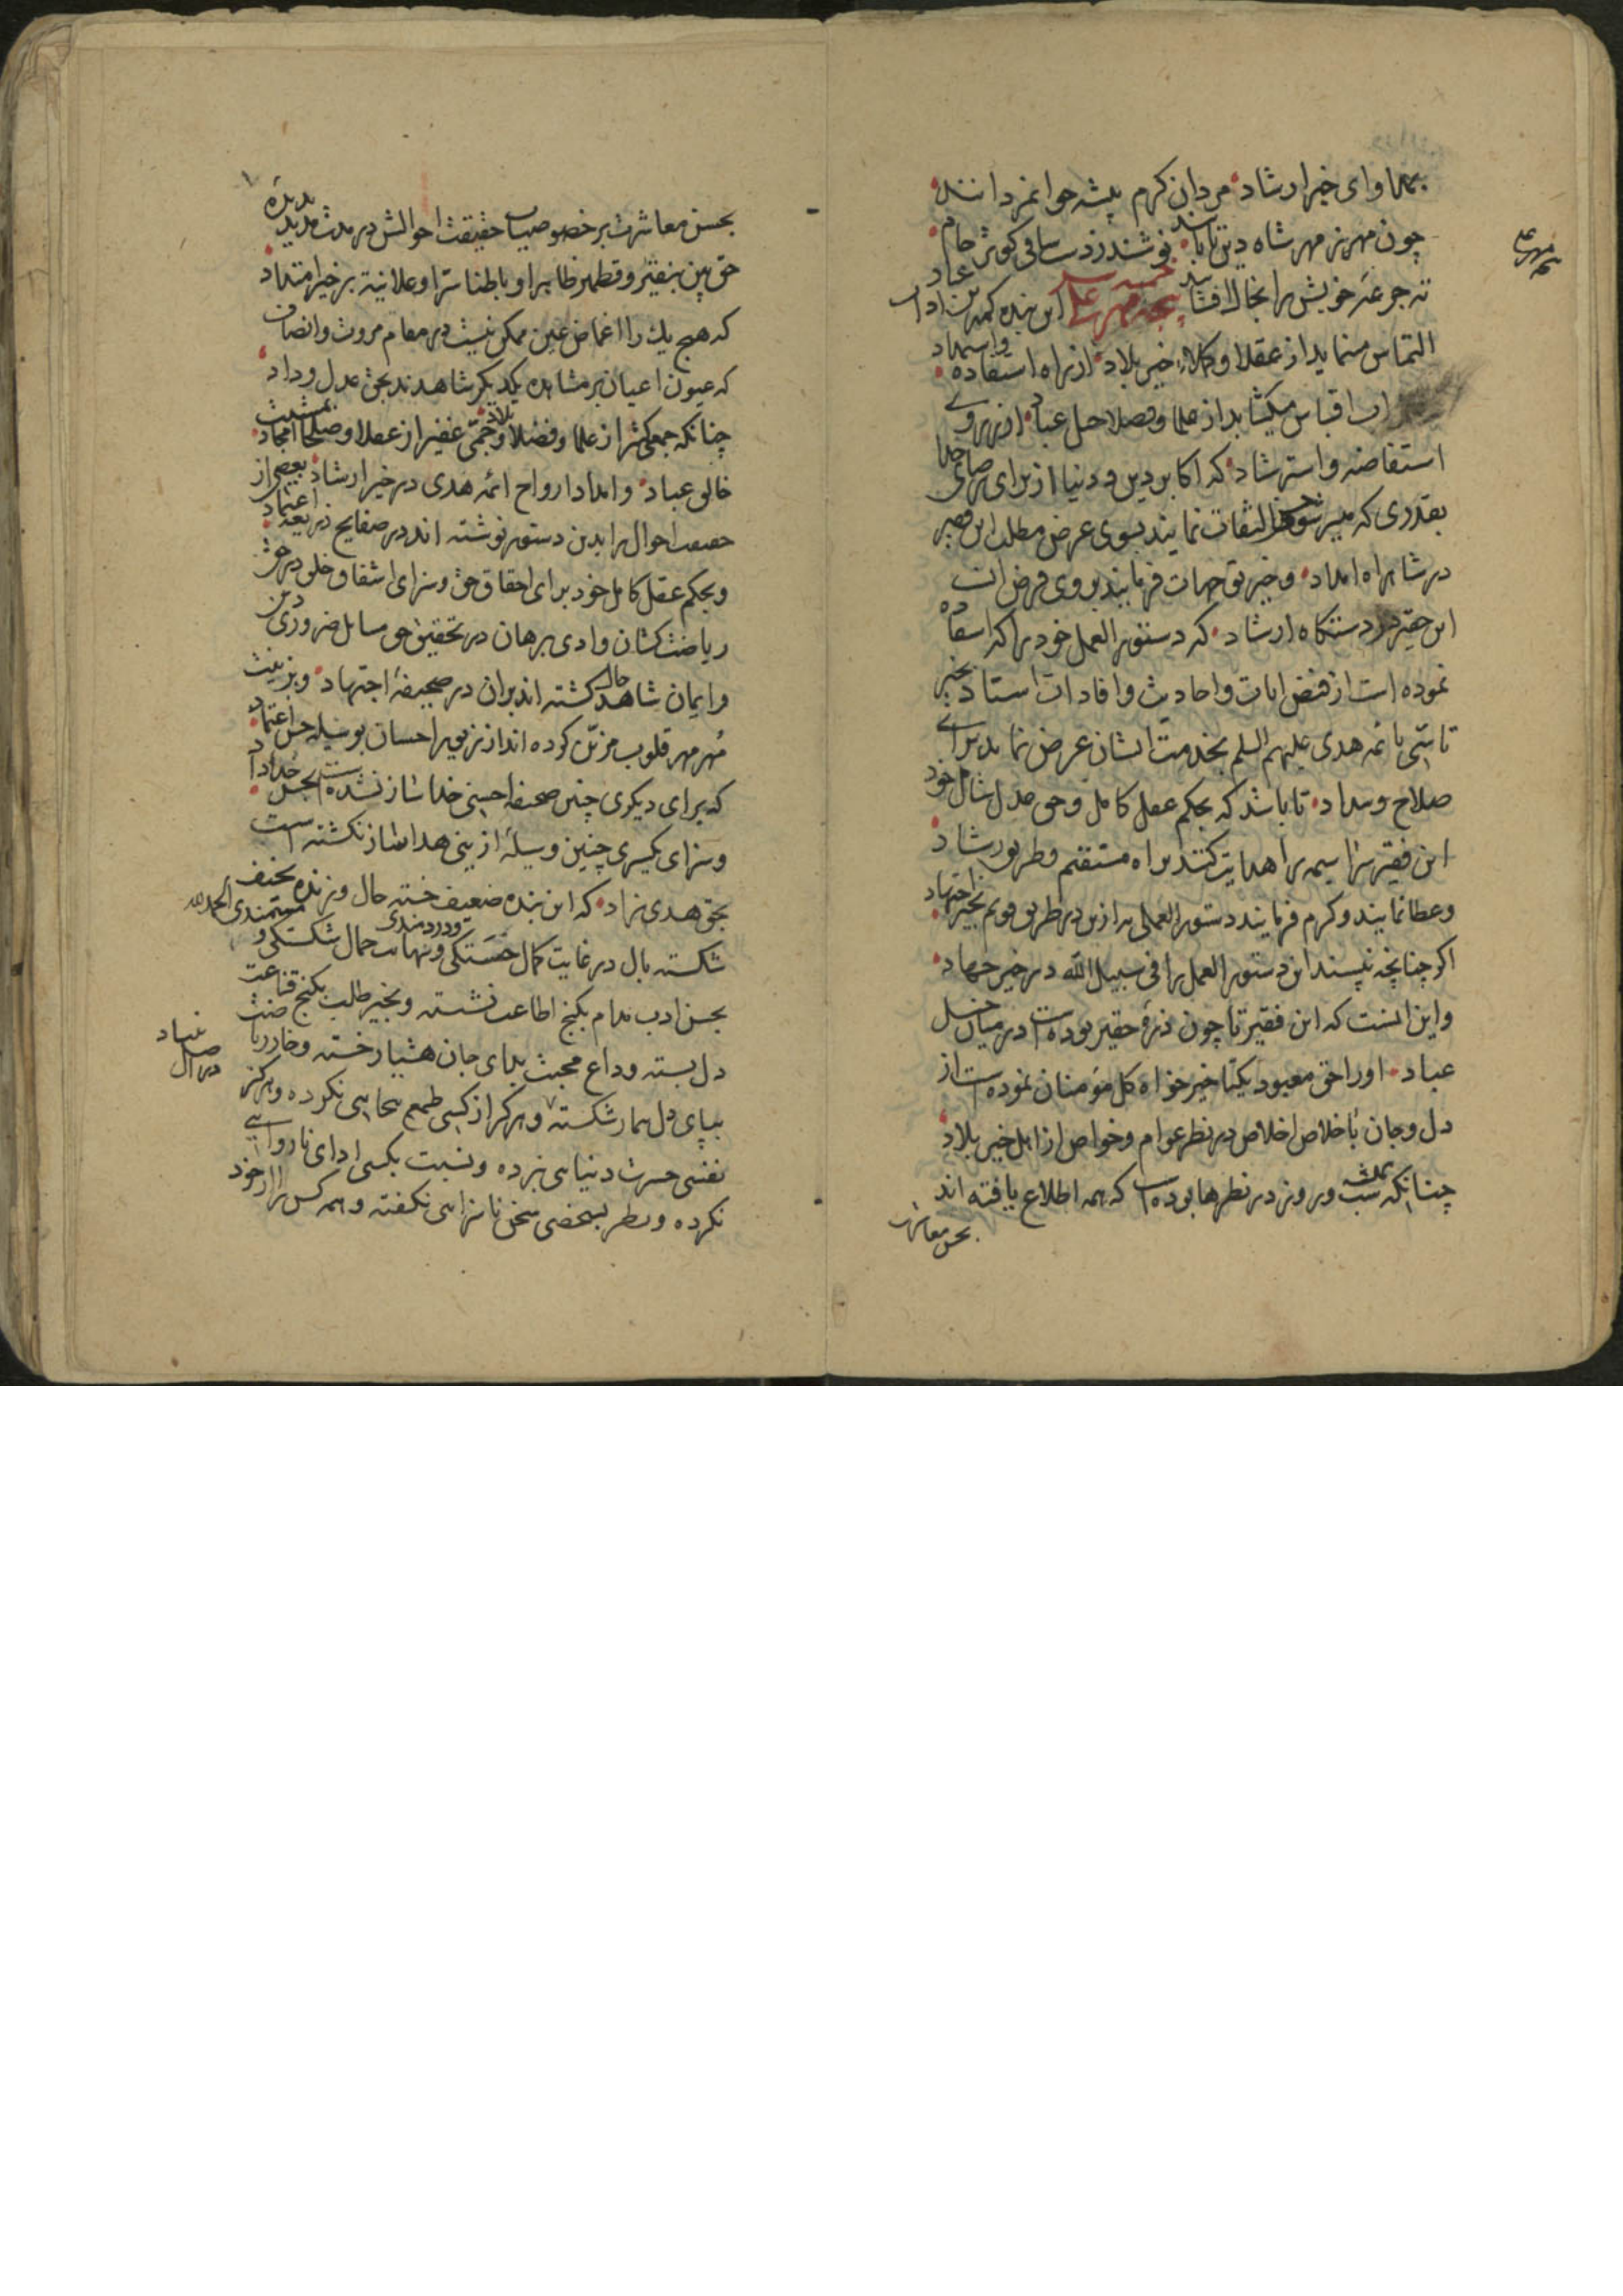 بمداوای خیر ارشاد مردان کرم پیشه جوانمردانند
چون مهر ز مهر شاه دین تابانند نوشند ز دست ساقی کوثر جام
ته جرعهٔ خویش را بخاک افشانند این بنده کمترین
التماس مینماید از عقلا و وکلاء خیر بلاد از راه استفاده و استمداد
اقتباس میکشاید از علما و فضلا عباد از روی
استفاضه و استرشاد که اکابر دین و دنیا از برای
بقدری که میسر شود التفات نمایند بسوی عرض مطلب این فقیر
در شاهراه امداد و خیر توجهات فرمایند بروی فرض ذات
این حقیر در دستگاه ارشاد که دستور العمل خود را که استفاده
نموده است از فیض ایات و احادیث و افادات استاد بخیر
تاسّی بائمه هدی علیهم السلم بخدمت ایشان عرض نماید برای
صلاح و سداد تا باشد که بحکم عقل کامل و حق عدل شامل خود
این فقیر سراسیمه را هدایت کنند براه مستقیم و طریق رشاد
و عطا نمایند و کرم فرمایند دستور العملی به ازین در طریق قویم بخیر اجتهاد
اگر چنانچه نپسند این دستور العمل را فی سبیل الله در خیر جهاد
و این است که این فقیر تا چون ذرهٔ حقیر بوده است در میان خیل
عباد او را حق معبود یکتا خیر خواه کل مؤمنان نموده است از
دل و جان باخلاص اخلاص در نظر عوام و خواص از اهل خیر بلاد
چنانکه شب و روز در نظرها بوده است که همه اطلاع یافته اند
بحسن معاشرت
بحسن معاشرت بر خصوصیات حقیقت احوالش در مدت مدید
حق بین بنقیر و قطمیر ظاهرا و باطنا سرّا و علانیة بر خیر امتداد
که هیچ یک را اغماض عین ممکن نیست در مقام مروت و انصاف
که عیون اعیان بر مشاهده یکدیگر شاهدند بحق عدل و داد
چنانکه جمعی کثیر از علما و فضلا و جمّی غفیر از عقلا و صلحا امجاد
خالق عباد و امداد ارواح ائمه هدی در خیر ارشاد بعضی از
حقیقت احوال را بدین دستور نوشته اند در صفایح ذریعهٔ اعتماد
و بحکم عقل کامل خود برای احقاق حق و سزای اشفاق خلق در حق
ریاضت کشان وادی برهان در تحقیق حق مسایل ضروری دین
و ایمان شاهد حال گشته اند بران در صحیفهٔ اجتهاد و بزینت
مُهر مهر قلوب مزیّن کرده اند از زیور احسان بوسیله حسن اعتماد
که برای دیگری چنین صحیفه احسنی خداساز نشده است بحسن خداداد
و سزای یکسری چنین وسیلهٔ ازینی هداساز نگشته است
بحق هدی نزاد که این بنده ضعیف خسته حال و زنده نحیف
شکسته بال در غایت کمال خستگی و دردمندی و نهایت جمال شکستگی و مستمندی الحمد لله
بحسن ادب مدام بکنج اطاعت نشسته و بخیر طلب بکنج قناعت
دل بسته و داع محبت بلای جان هشیار خسته و خار ریاضت
بپای دل بیمار شکسته و هرگز از کسی طمع بیجایی نکرده و هرگز
نفسی حسرت دنیایی نبرده و نسبت بکسی ادای ناروایی
نکرده و نظر بشخصی سخن ناسزایی نگفته و همه کس را از خود